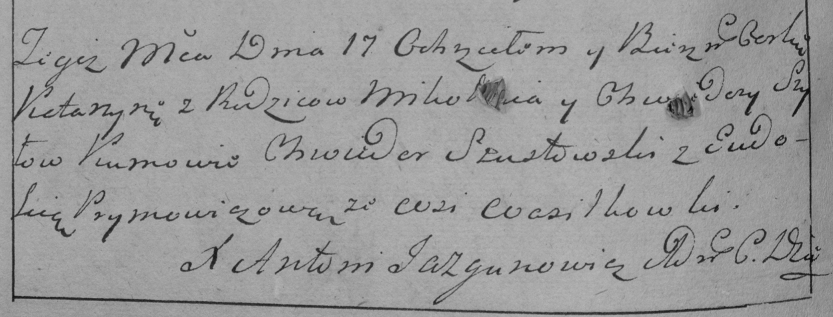 Tegoż Mca Dnia 17 Ochrzciłem y Bierzm Corkę
Katarzynę z Rodzicow Mikołaia y Chwiedory Szy
łow Kumowie Chwiedor Szustowski z Eudo-
kią Prymowiczową ze wsi Wasilkowki.
X Antoni Jazgunowicz